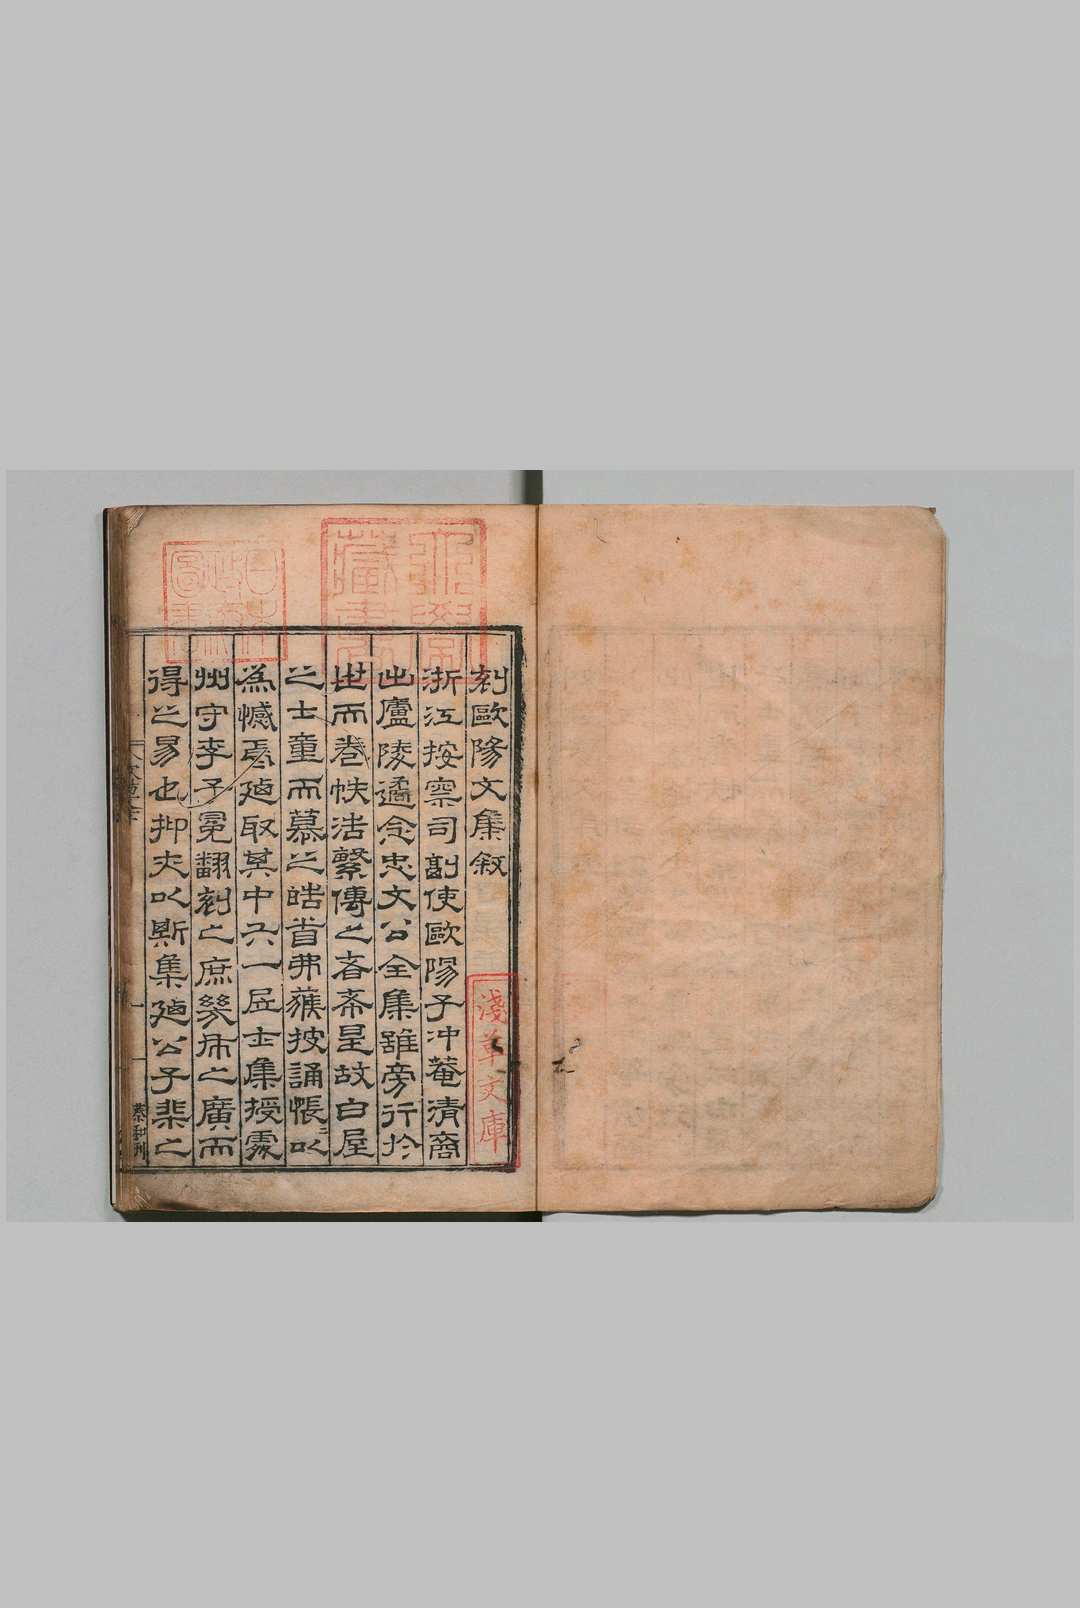 刻歐陽文集叙
浙江按察司副使歐陽子冲菴清商
出廬陵遹念忠文公全集雖旁行於
世而卷帙浩繁傳之者希是故白屋
之士童而慕之皓首弗獲披誦悵〻以
為憾焉廼取其中六一居士集授處
州守李子冕翻刻之庶幾布之廣而
得之易也抑夫以斯集廼公子棐之
淺草文庫
日本
政府
圖書